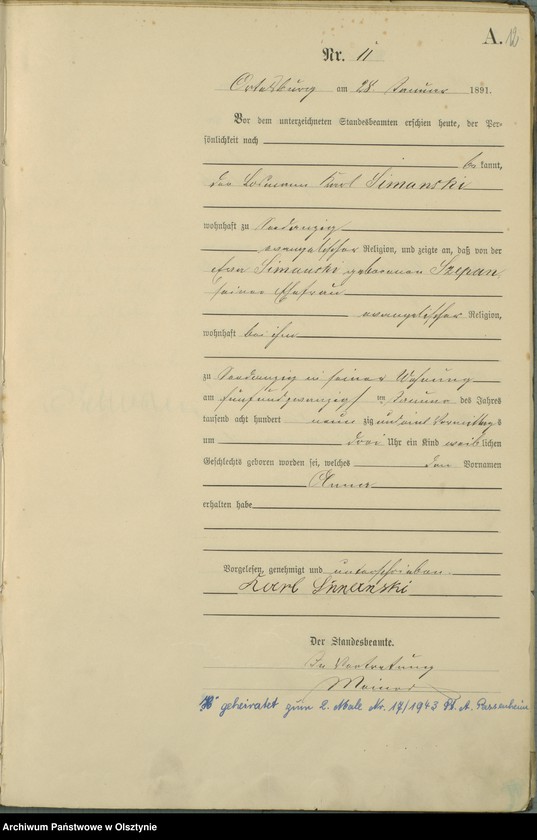 A. 12
Nr. 11
Ortelsburg am 28. Januar 1891.
Vor dem unterzeichneten Standesbeamten erschien heute, der Per-
sönlichkeit nach
be kannt,
der Losmann Karl Simanski
wohnhaft zu Seedanzig
evangelischer Religion, und zeigte an, daß von der
Simanski geborenen Szepan
seiner Ehefrau
evangelischer Religion,
wohnhaft bei ihm
zu Seedanzig in seiner Wohnung
am fünfundzwanzigsten Januar des Jahres
tausend acht hundert neun zig und eins Vormittags
um drei Uhr ein Kind weib lichen
Geschlechts geboren worden sei, welches den Vornamen
Anna
erhalten habe
Vorgelesen, genehmigt und unterschrieben
Karl Simanski
Der Standesbeamte.
In Vertretung
geheiratet zum 2. Male Nr. 17/1943 St. A. Passenheim
Archiwum Państwowe w Olsztynie